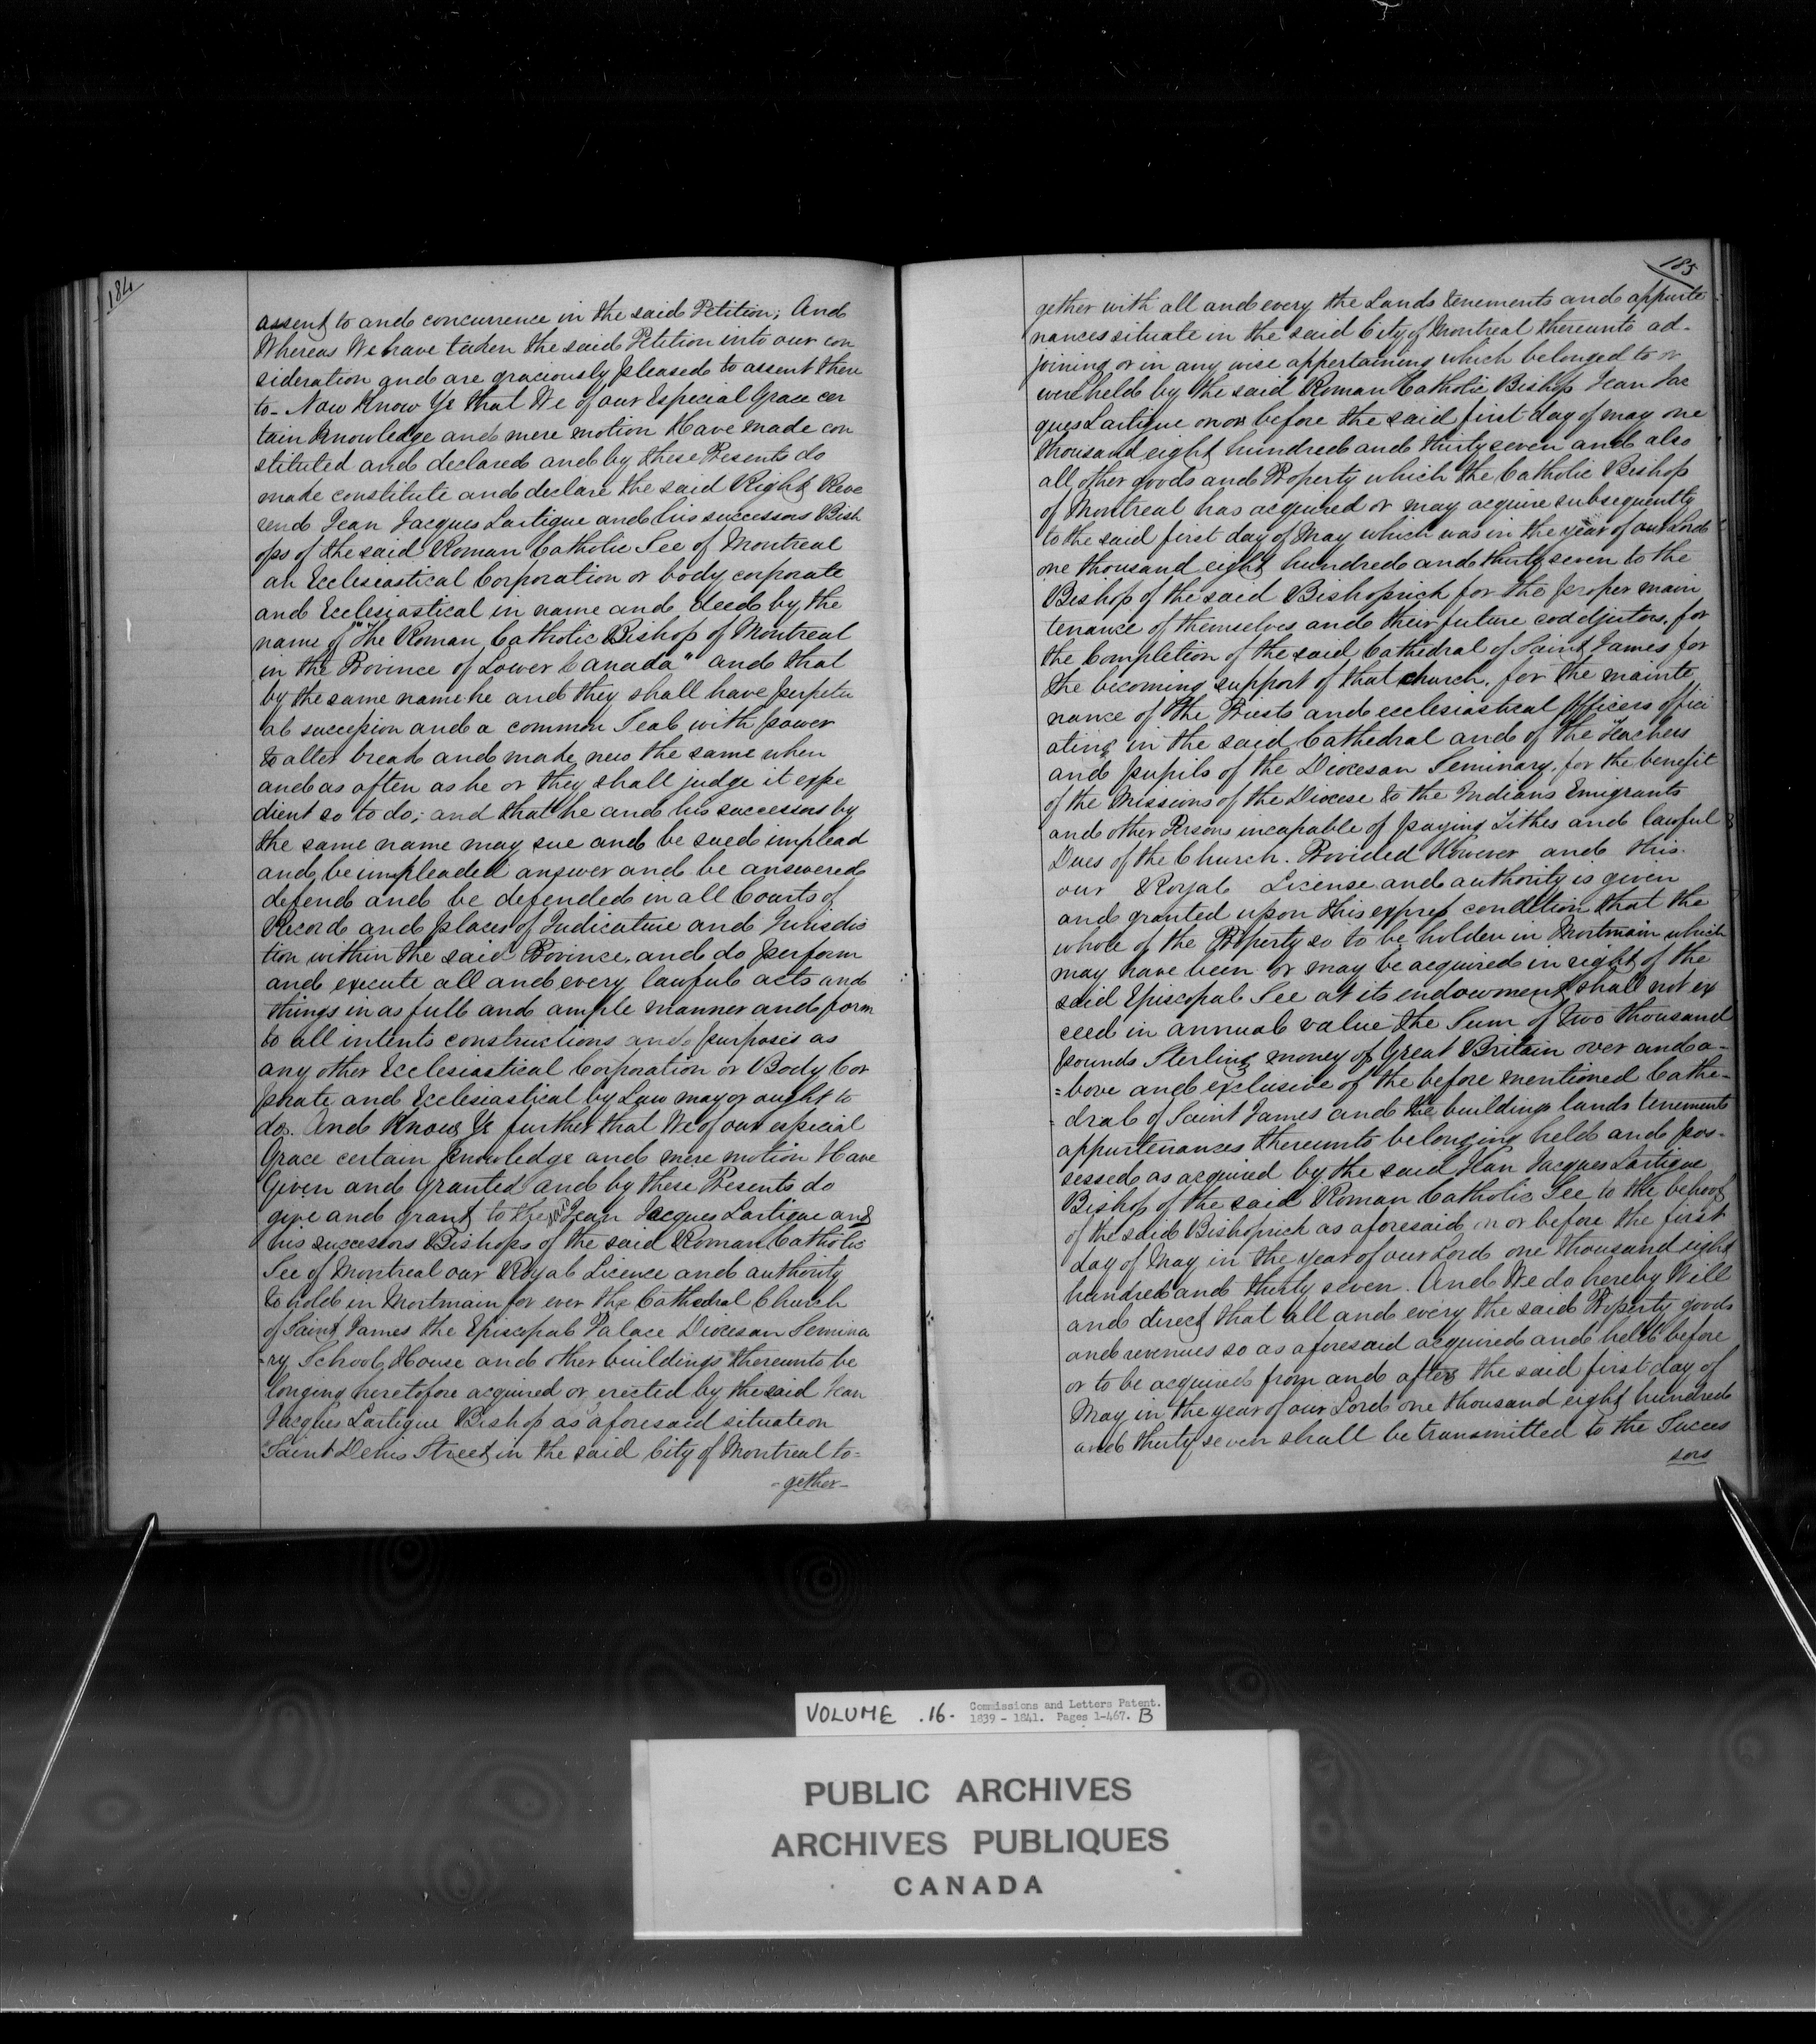 184
assent to and concurrence in the said Petition; And
Whereas We have taken the said Petition into our con
sideration and are graciously pleased to assent there
to - Now Know Ye that We of our Especial Grace cer
tain knowledge and mere motion Have made con
stituted and declared and by these Presents do
make constitute and declare the said Right Reve
rend Jean Jacques Lartigue and his successors Bish
ops of the said Roman Catholic See of Montreal
an Ecclesiastical Corporation or body corporate
and Ecclesiastical in name and deed by the
name of "The Roman Catholic Bishop of Montreal
in the Province of Lower Canada" and that
by the same name he and they shall have perpetu
al succession and a common Seal with power
to alter break and make new the same when
and as often as he or they shall judge it expe
dient so to do; and that he and his successors by
the same name may sue and be sued implead
and be impleaded answer and be answered
defend and be defended in all Courts of
Record and places of Judicature and Jurisdic
tion within the said Province, and do perform
and execute all and every lawful acts and
things in as full and ample manner and form
to all intents constructions and purposes as
any other Ecclesiastical Corporation or Body Cor
porate and Ecclesiastical by Law may or ought to
do. And Know Ye further that We of our especial
Grace certain knowledge and mere motion Have
Given and Granted and by these Presents do
give and grant to the said Jean Jacques Lartigue and
his successors Bishops of the said Roman Catholic
See of Montreal our Royal Licence and authority
to hold in Mortmain for ever the Cathedral Church
of Saint James the Episcopal Palace Diocesan Semina
-ry School House and other buildings thereunto be
longing heretofore acquired or erected by the said Jean
Jacques Lartigue Bishop as aforesaid situation
Saint Denis Street in the said City of Montreal to=
-gether-
185
gether with all and every the Lands tenements and appurte
nances situate in the said City of Montreal thereunto ad-
joining or in any wise appertaining which belonged to or
were held by the said Roman Catholic Bishop Jean Jac
ques Lartigue on or before the said first day of may one
thousand eight hundred and thirty seven and also
all other goods and Property which the Catholic Bishop
of Montreal has acquired or may acquire subsequently
to the said first day of May which was in the year of our Lord
one thousand eight hundred and thirty seven to the
Bishop of the said Bishoprich for the proper main
tenance of themselves and their future coddjutors, for
the Completion of the said Cathedral of Saint James for
the becoming support of that church, for the mainte
nance of the Priests and ecclesiastical Officers offici
ating in the said Cathedral and of the Teachers
and pupils of the Diocesan Seminary, for the benefit
of the Missions of the Diocese to the Indians Emigrants
and other Persons incapable of paying Tithes and lawful
Dues of the Church. Provided However and this
our Royal License and authority is given
and granted upon this express condition that the
whole of the Property so to be holden in Mortmain which
may have been or may be acquired in right of the
said Episcopal See at its endowment shall not ex
ceed in annual value the Sum of two thousand
pounds Sterling money of Great Britain over and a-
=bove and exclusive of the before mentioned Cathe-
=dral of Saint James and the buildings lands tenements
appurtenances thereunto belonging held and pos-
sessed as acquired by the said Jean Jacques Lartigue
Bishop of the said Roman Catholic See to the behoof
of the said Bishoprich as aforesaid on or before the first
day of May in the year of our Lord one thousand eight
hundred and thirty seven. And We do hereby Will
and direct that all and every the said Property goods
and revenues so as aforesaid acquired and held before
or to be acquired from and after the said first day of
May in the year of our Lord one thousand eight hundred
and thirty seven shall be transmitted to the Succes
sors
VOLUME .16. Commissions and Letters Patent.
1839 - 1841. Pages 1-467. B
PUBLIC ARCHIVES
ARCHIVES PUBLIQUES
CANADA